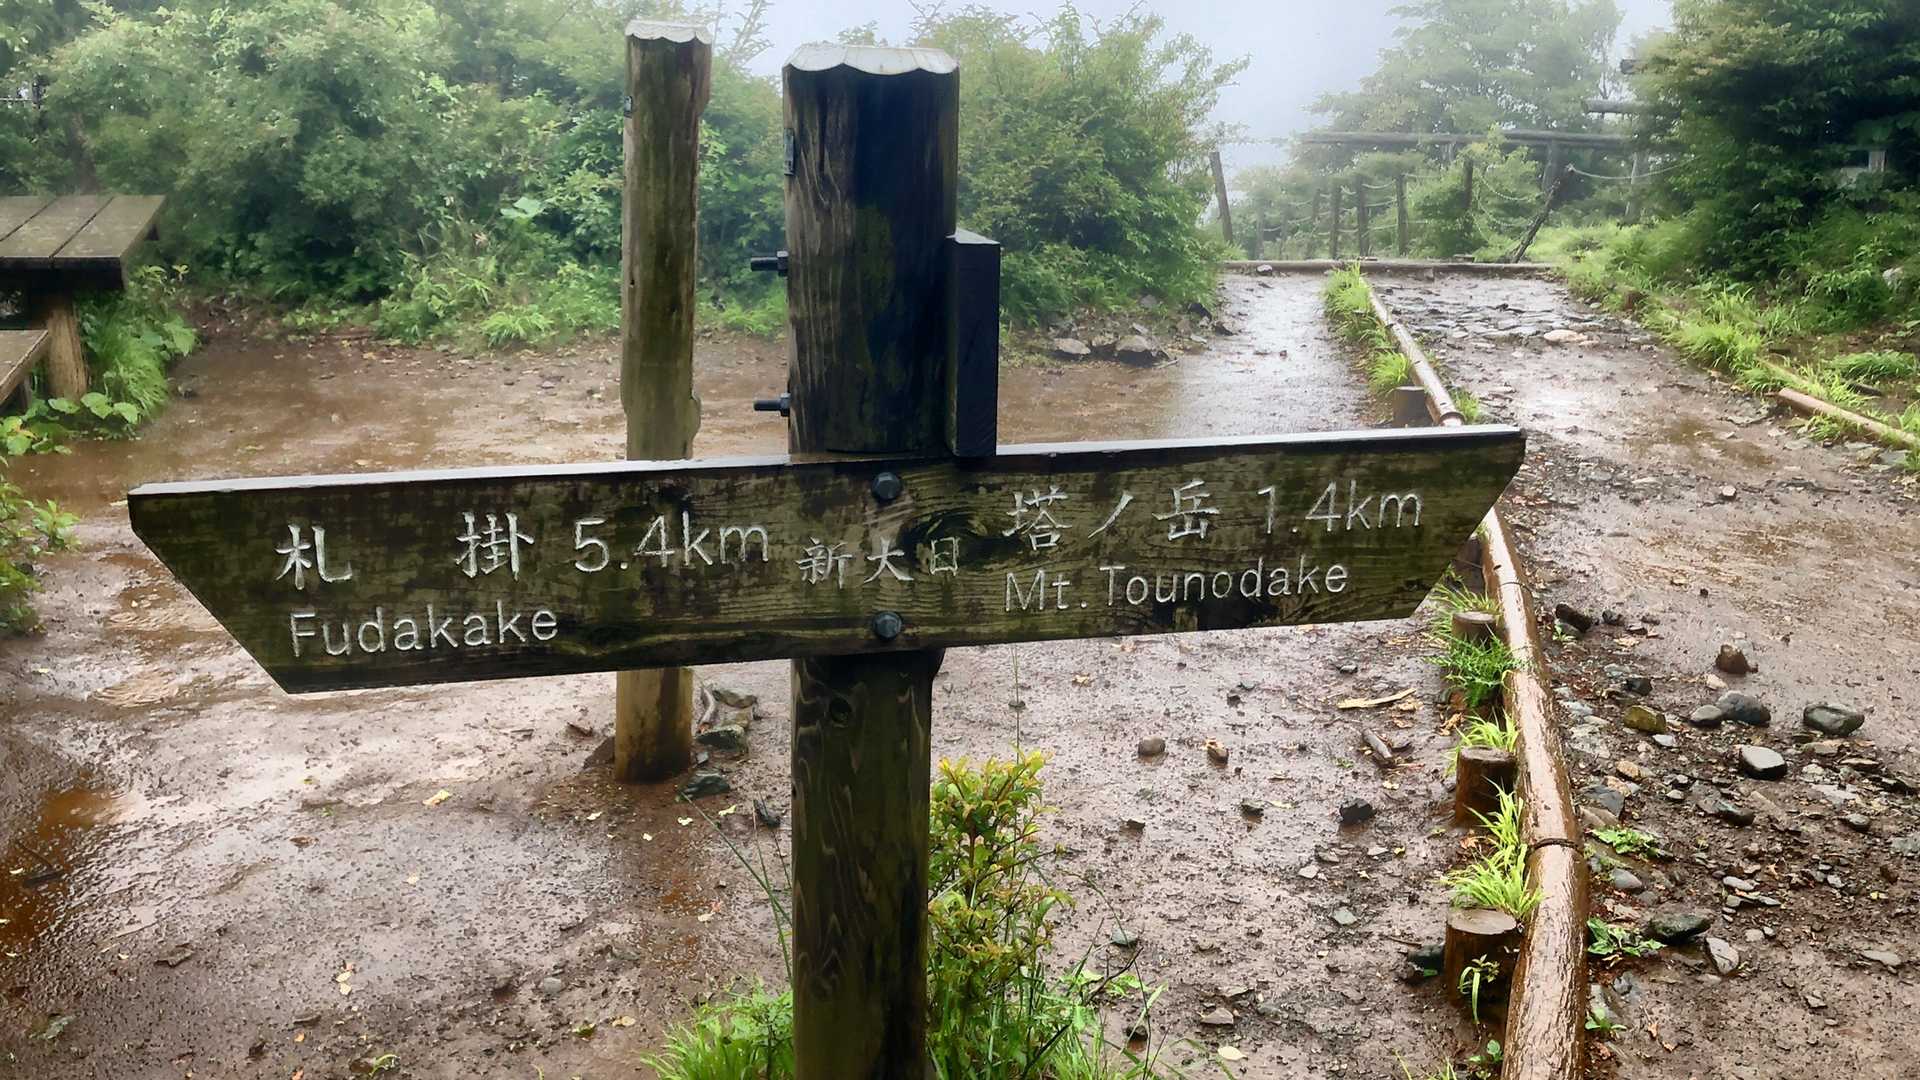 札 掛 5.4km
Fudakake
新大日
塔ノ岳 1.4km
Mt. Tounodake